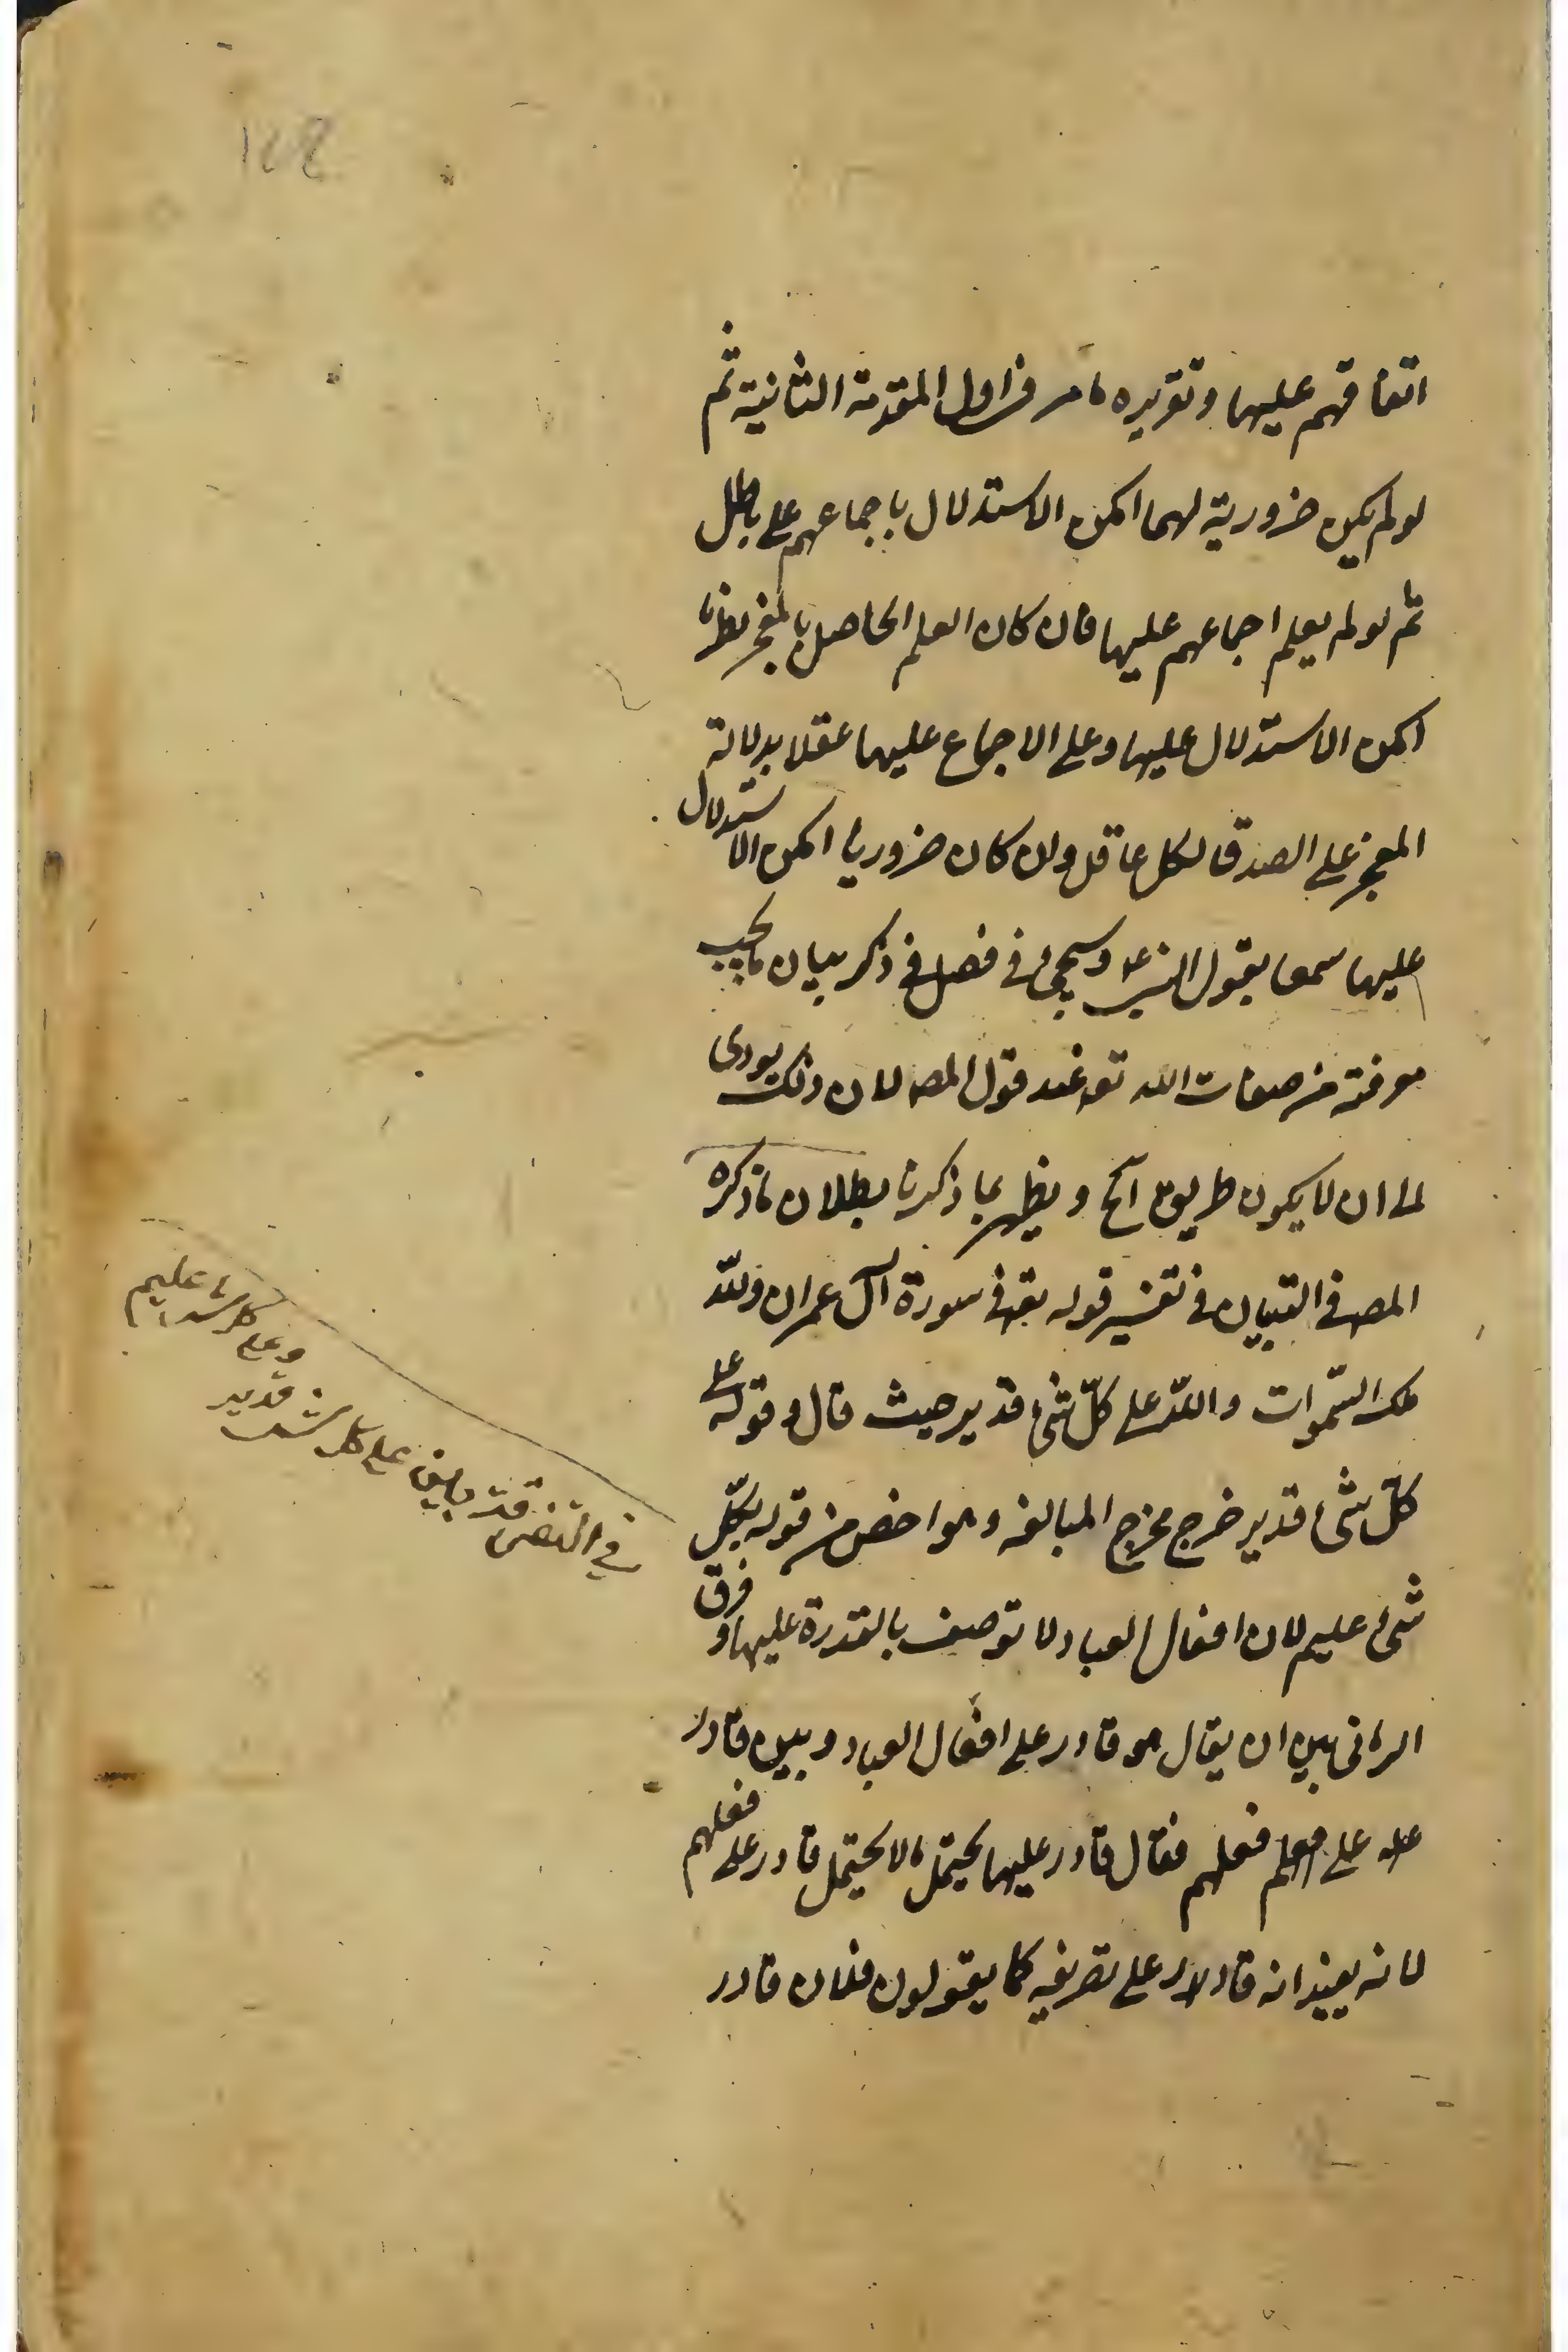 اتفاقهم عليها وتقريره ما مر فى اول المقدمة الثانية ثم
لو لم يكن ضرورية لهما امكن الاستدلال باجماعهم على باطل
ثم لو لم يعلم اجماعهم عليها فان كان العلم الحاصل بالمعجز نظريا
امكن الاستدلال عليها وعلى الاجماع عليها عقلا بدلالة
المعجز على الصدق لكل عاقل وان كان ضروريا امكن الاستدلال
عليها سمعا بقول النبى ع وسيجىء فى فصل فى ذكر بيان ما يجب
معرفته من صفات الله تعه عند قول المصه لان ذلك يودى
لما ان لا يكون طريق آلخ ويظهر بما ذكرنا بطلان ما ذكره
المصه فى التبيان فى تفسير قوله تعه فى سورة آل عمران ولله
ملك السّموات والله على كلّ شىء قدير حيث قال وقوله على
كلّ شىء قدير خرج مخرج المبالغه وهو اخص من قوله بكلّ
شىء عليم لان افعال العباد لا توصف بالقدرة عليها وفرق
الرمانى بين ان يقال هو قادر على افعال العباد وبين قادر
على فعلهم فقال قادر عليها يحتمل ما لا يحتمل قادر على فعلهم
لانه يفيد انه قادر على تصريفه كما يقولون فلان قادر
128
وعلى كل شىء عليم
على كل شىء قدير